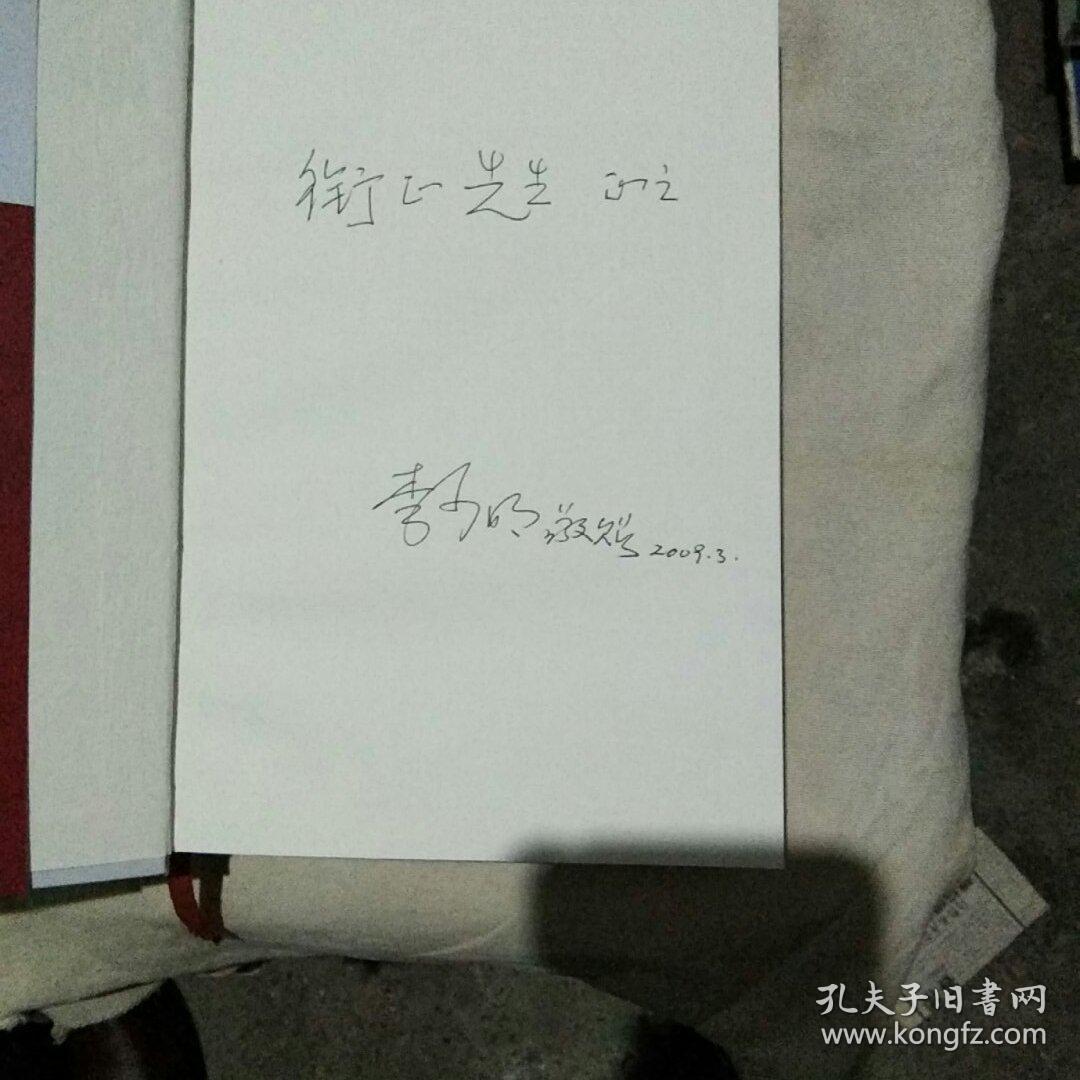 衡正先生 正之
李子明 敬赠 2009.3.
孔夫子旧書网
www.kongfz.com